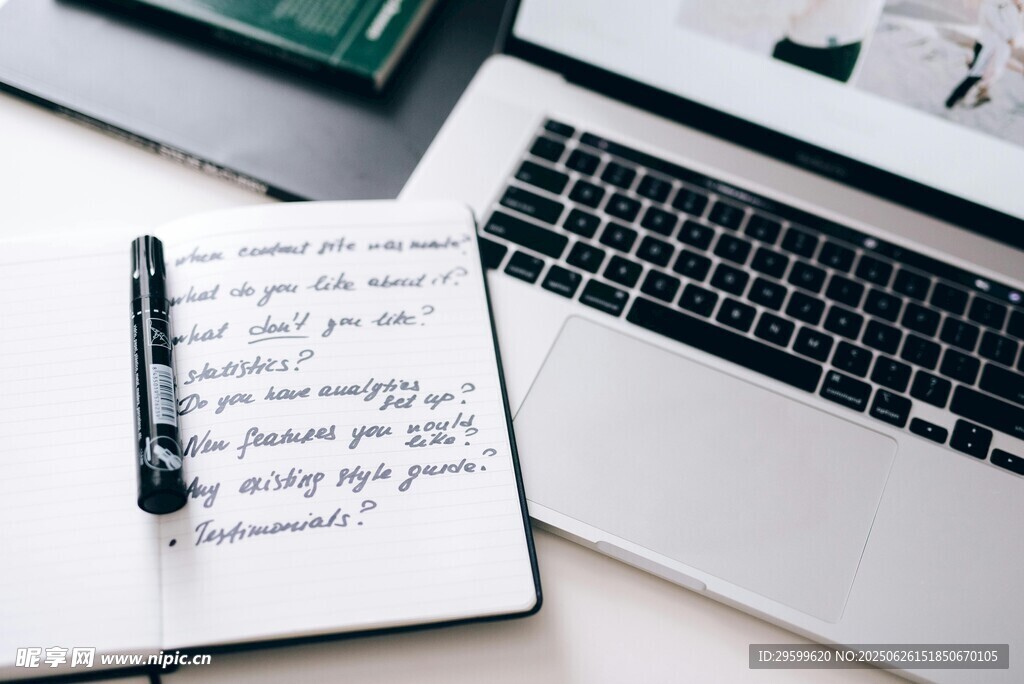 when current site was made?
what do you like about it?
what don't you like?
statistics?
Do you have analytics
set up?
New features you would
like?
Any existing style guide?
• Testimonials?
command
option
command
昵享网 www.nipic.cn
ID:29599620 NO:20250626151850670105